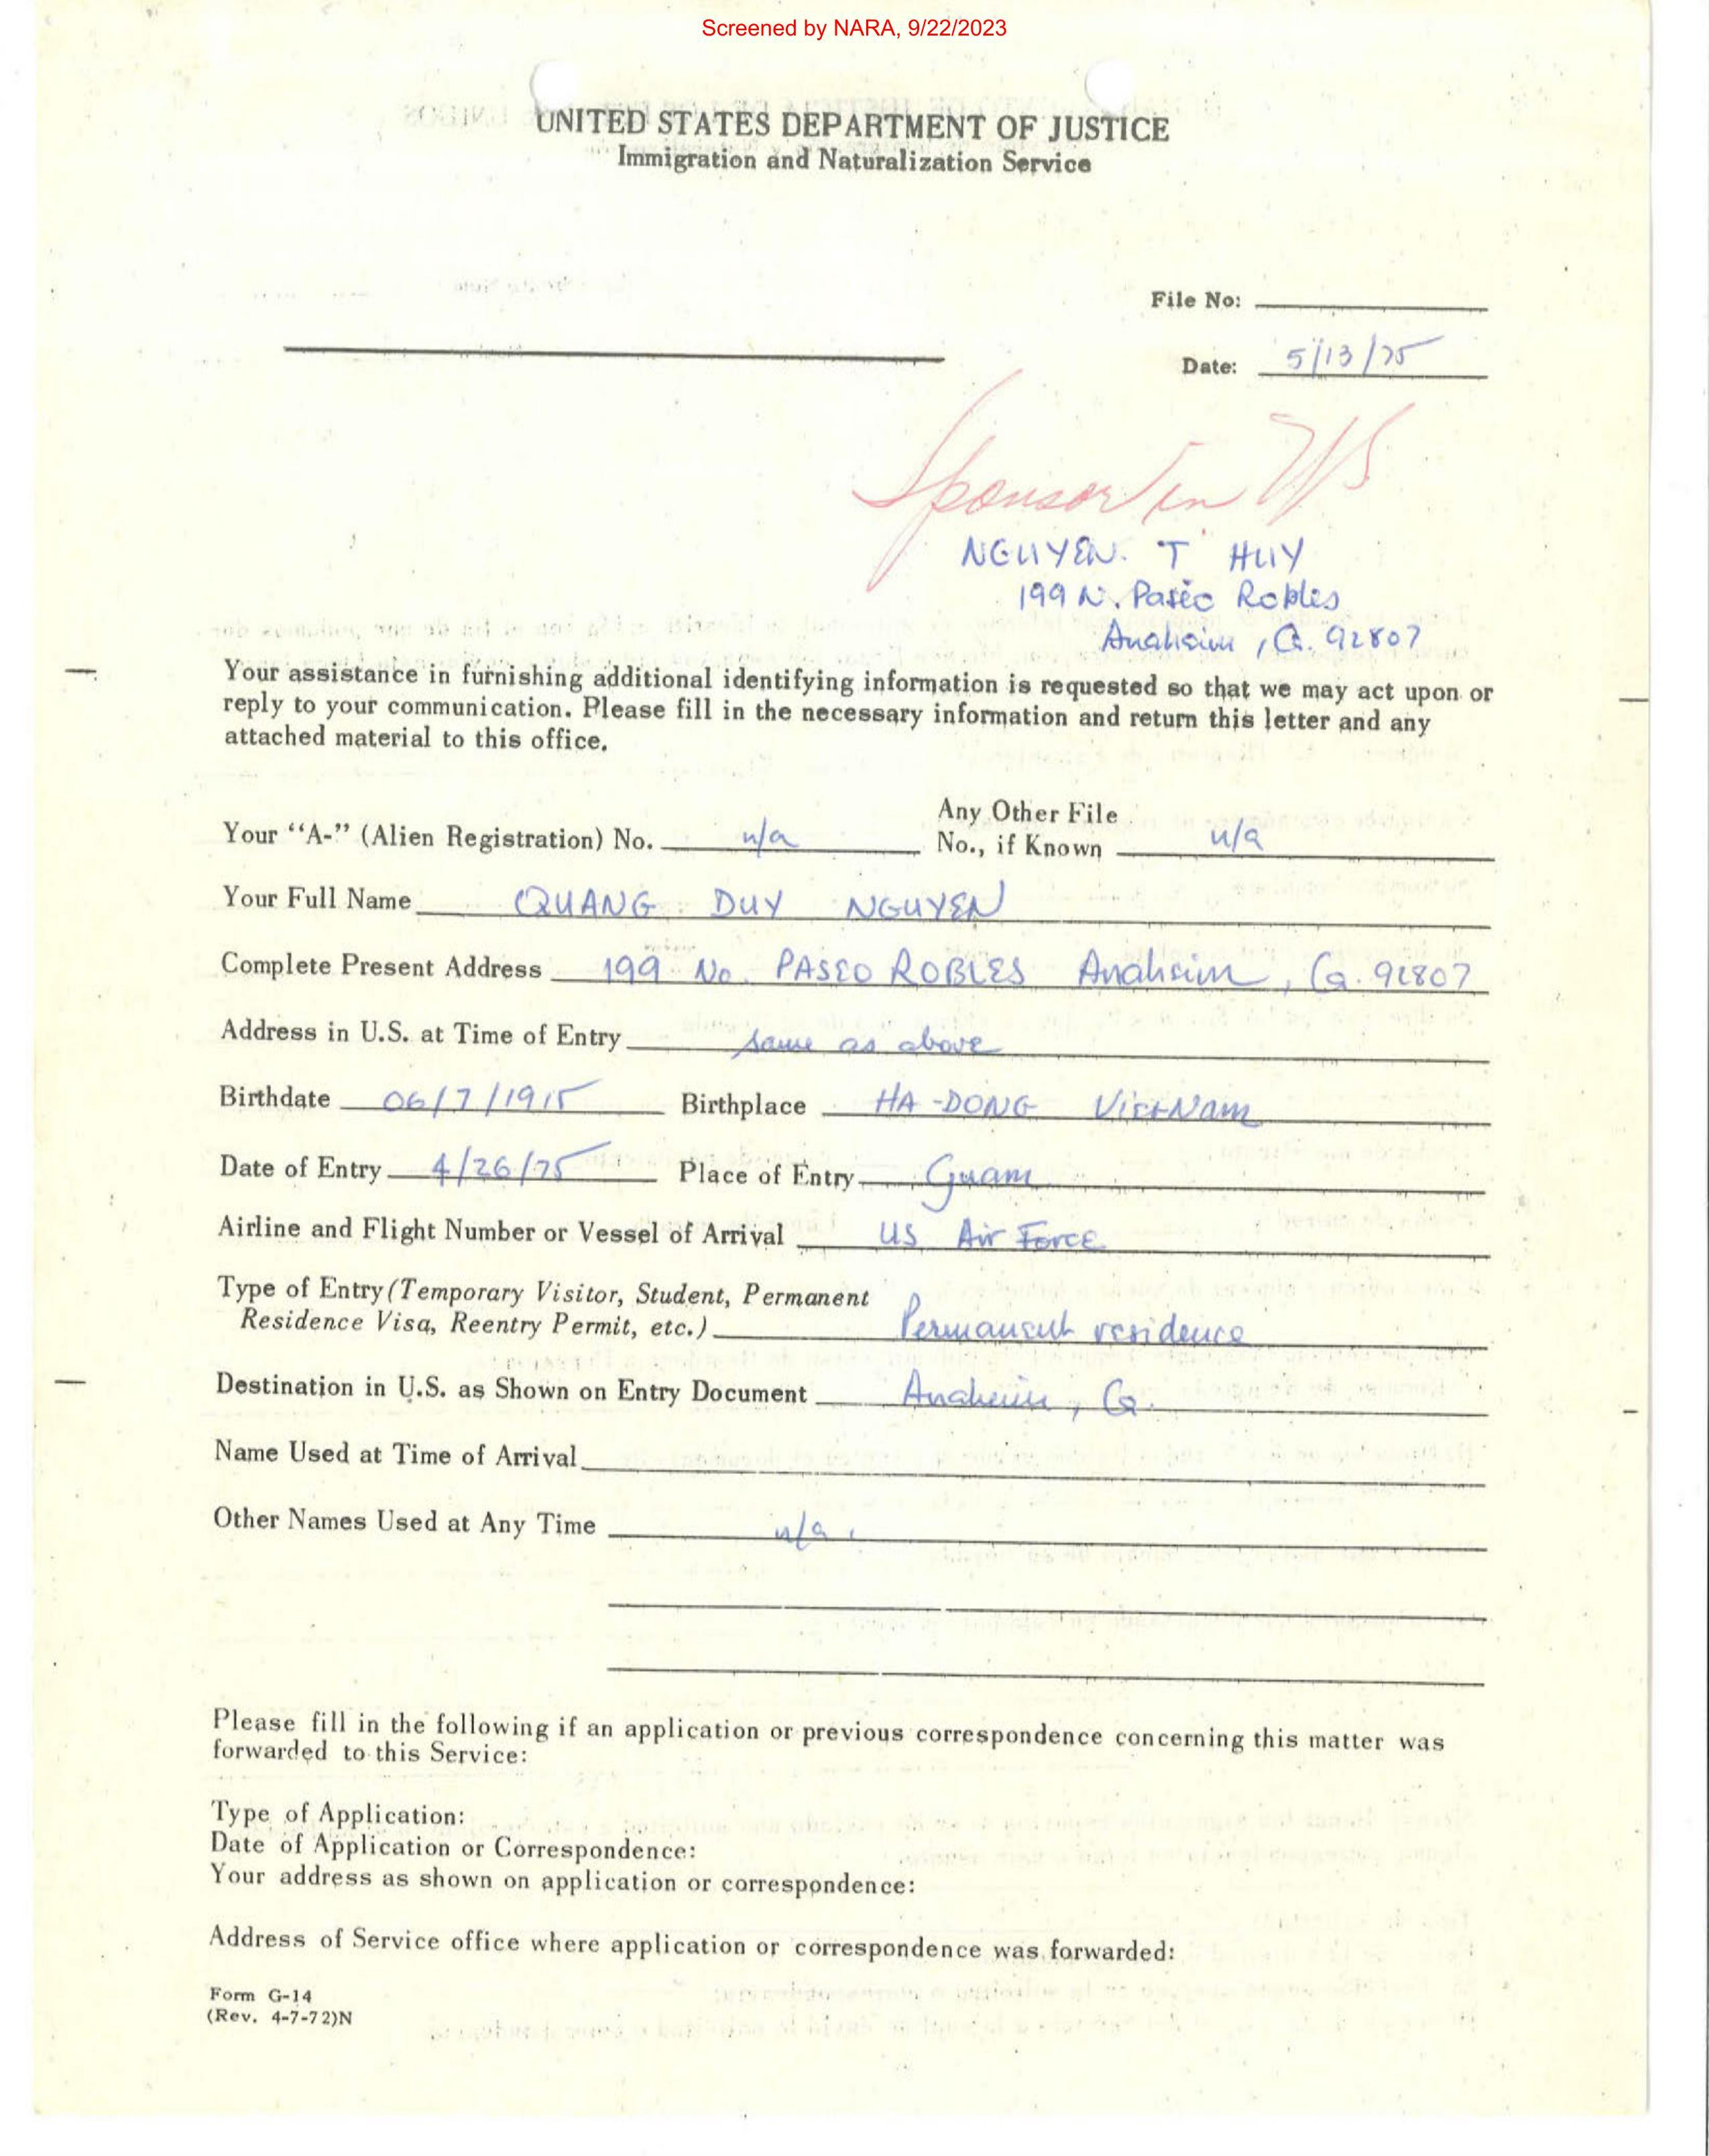 Screened by NARA, 9/22/2023
UNITED STATES DEPARTMENT OF JUSTICE
Immigration and Naturalization Service
File No:
Date: 5/13/75
Sponsor in U/S
NGUYEN. T HUY
199 N. Paseo Robles
Anaheim, Ca. 92807
Your assistance in furnishing additional identifying information is requested so that we may act upon or
reply to your communication. Please fill in the necessary information and return this letter and any
attached material to this office.
Your “A-” (Alien Registration) No. n/a Any Other File No., if Known n/a
Your Full Name QUANG DUY NGUYEN
Complete Present Address 199 No. PASEO ROBLES Anaheim, Ca. 92807
Address in U.S. at Time of Entry same as above
Birthdate 06/7/1915 Birthplace HA-DONG VIETNAM
Date of Entry 4/26/75 Place of Entry Guam
Airline and Flight Number or Vessel of Arrival US Air Force
Type of Entry (Temporary Visitor, Student, Permanent
Residence Visa, Reentry Permit, etc.) Permanent residence
Destination in U.S. as Shown on Entry Document Anaheim, Ca.
Name Used at Time of Arrival
Other Names Used at Any Time n/a.
Please fill in the following if an application or previous correspondence concerning this matter was
forwarded to this Service:
Type of Application:
Date of Application or Correspondence:
Your address as shown on application or correspondence:
Address of Service office where application or correspondence was forwarded:
Form G-14
(Rev. 4-7-72)N